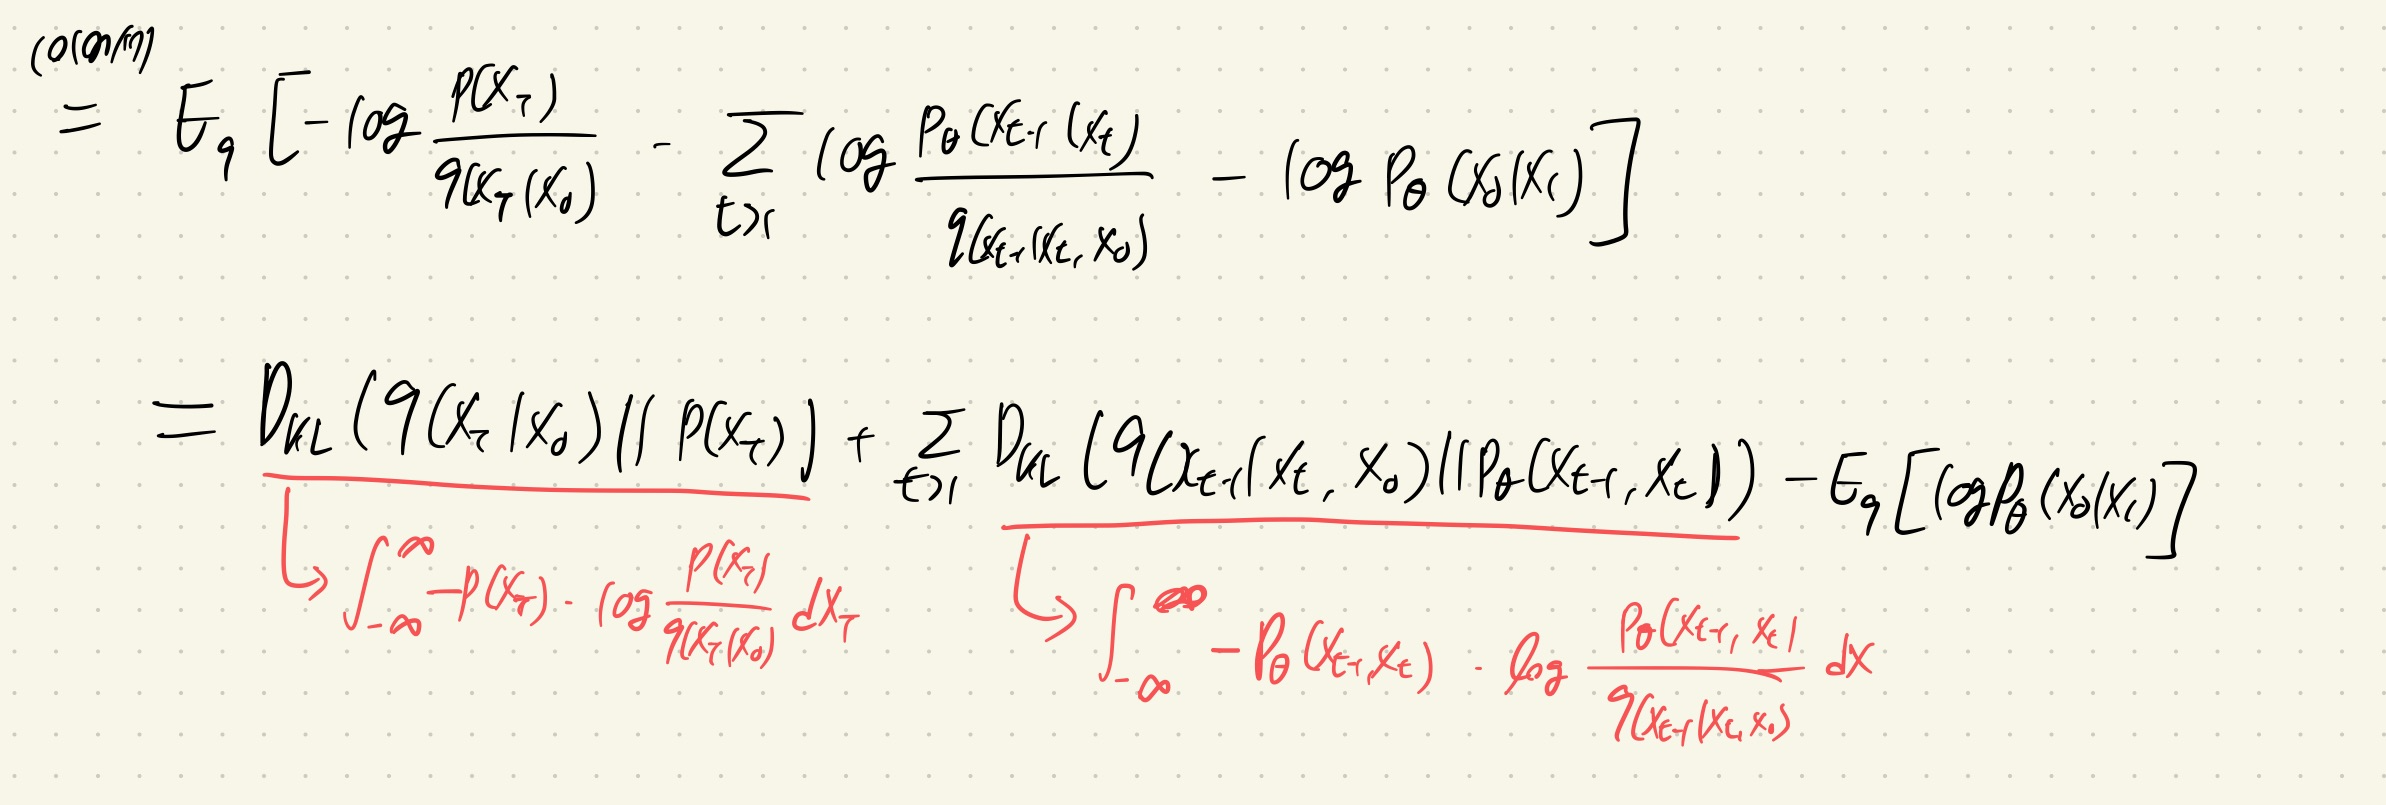 = E_q [ -log p(x_T) / q(x_T|x_0) - Σ_{t>1} log p_θ(x_{t-1}|x_t) / q(x_{t-1}|x_t, x_0) - log p_θ(x_0|x_1) ]
= D_KL(q(x_T|x_0) || p(x_T)) + Σ_{t>1} D_KL(q(x_{t-1}|x_t, x_0) || p_θ(x_{t-1}, x_t)) - E_q [log p_θ(x_0|x_1)]
∫_{-∞}^{∞} -p(x_T) · log p(x_T) / q(x_T|x_0) dx_T
∫_{-∞}^{∞} -p_θ(x_{t-1}, x_t) · log p_θ(x_{t-1}, x_t) / q(x_{t-1}|x_t, x_0) dx